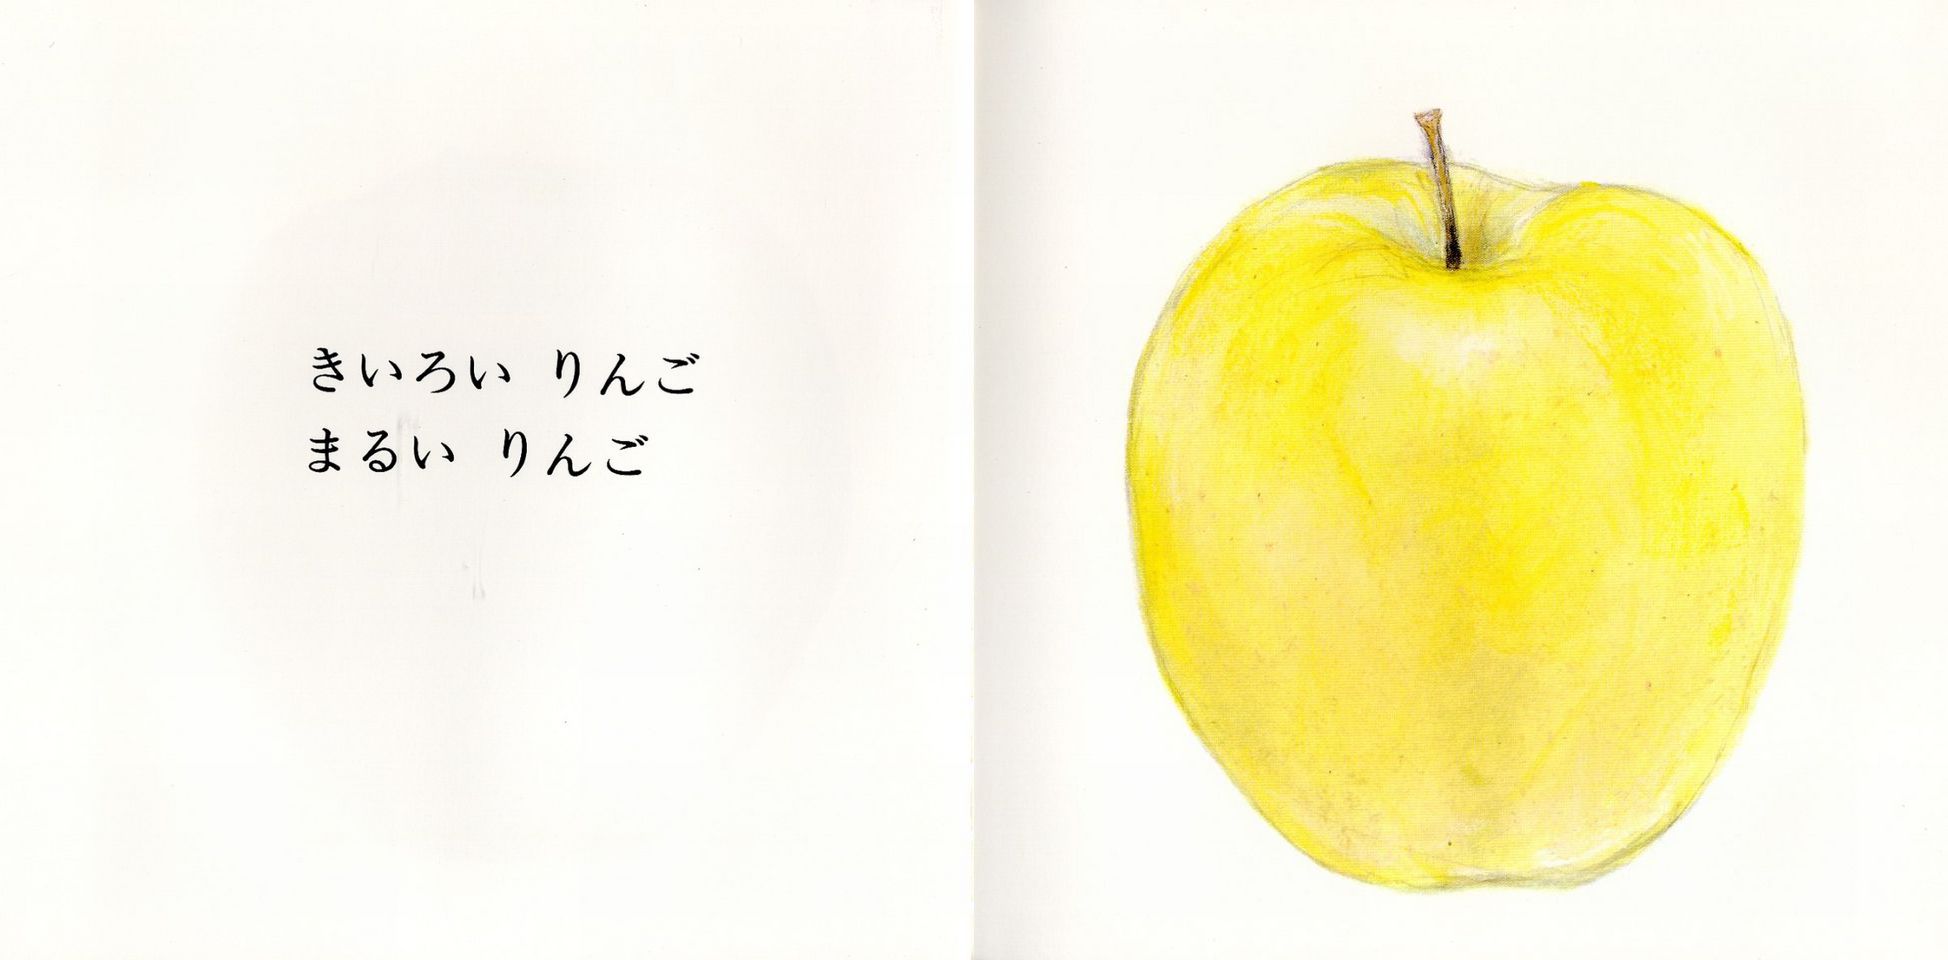 きいろい りんご
まるい りんご